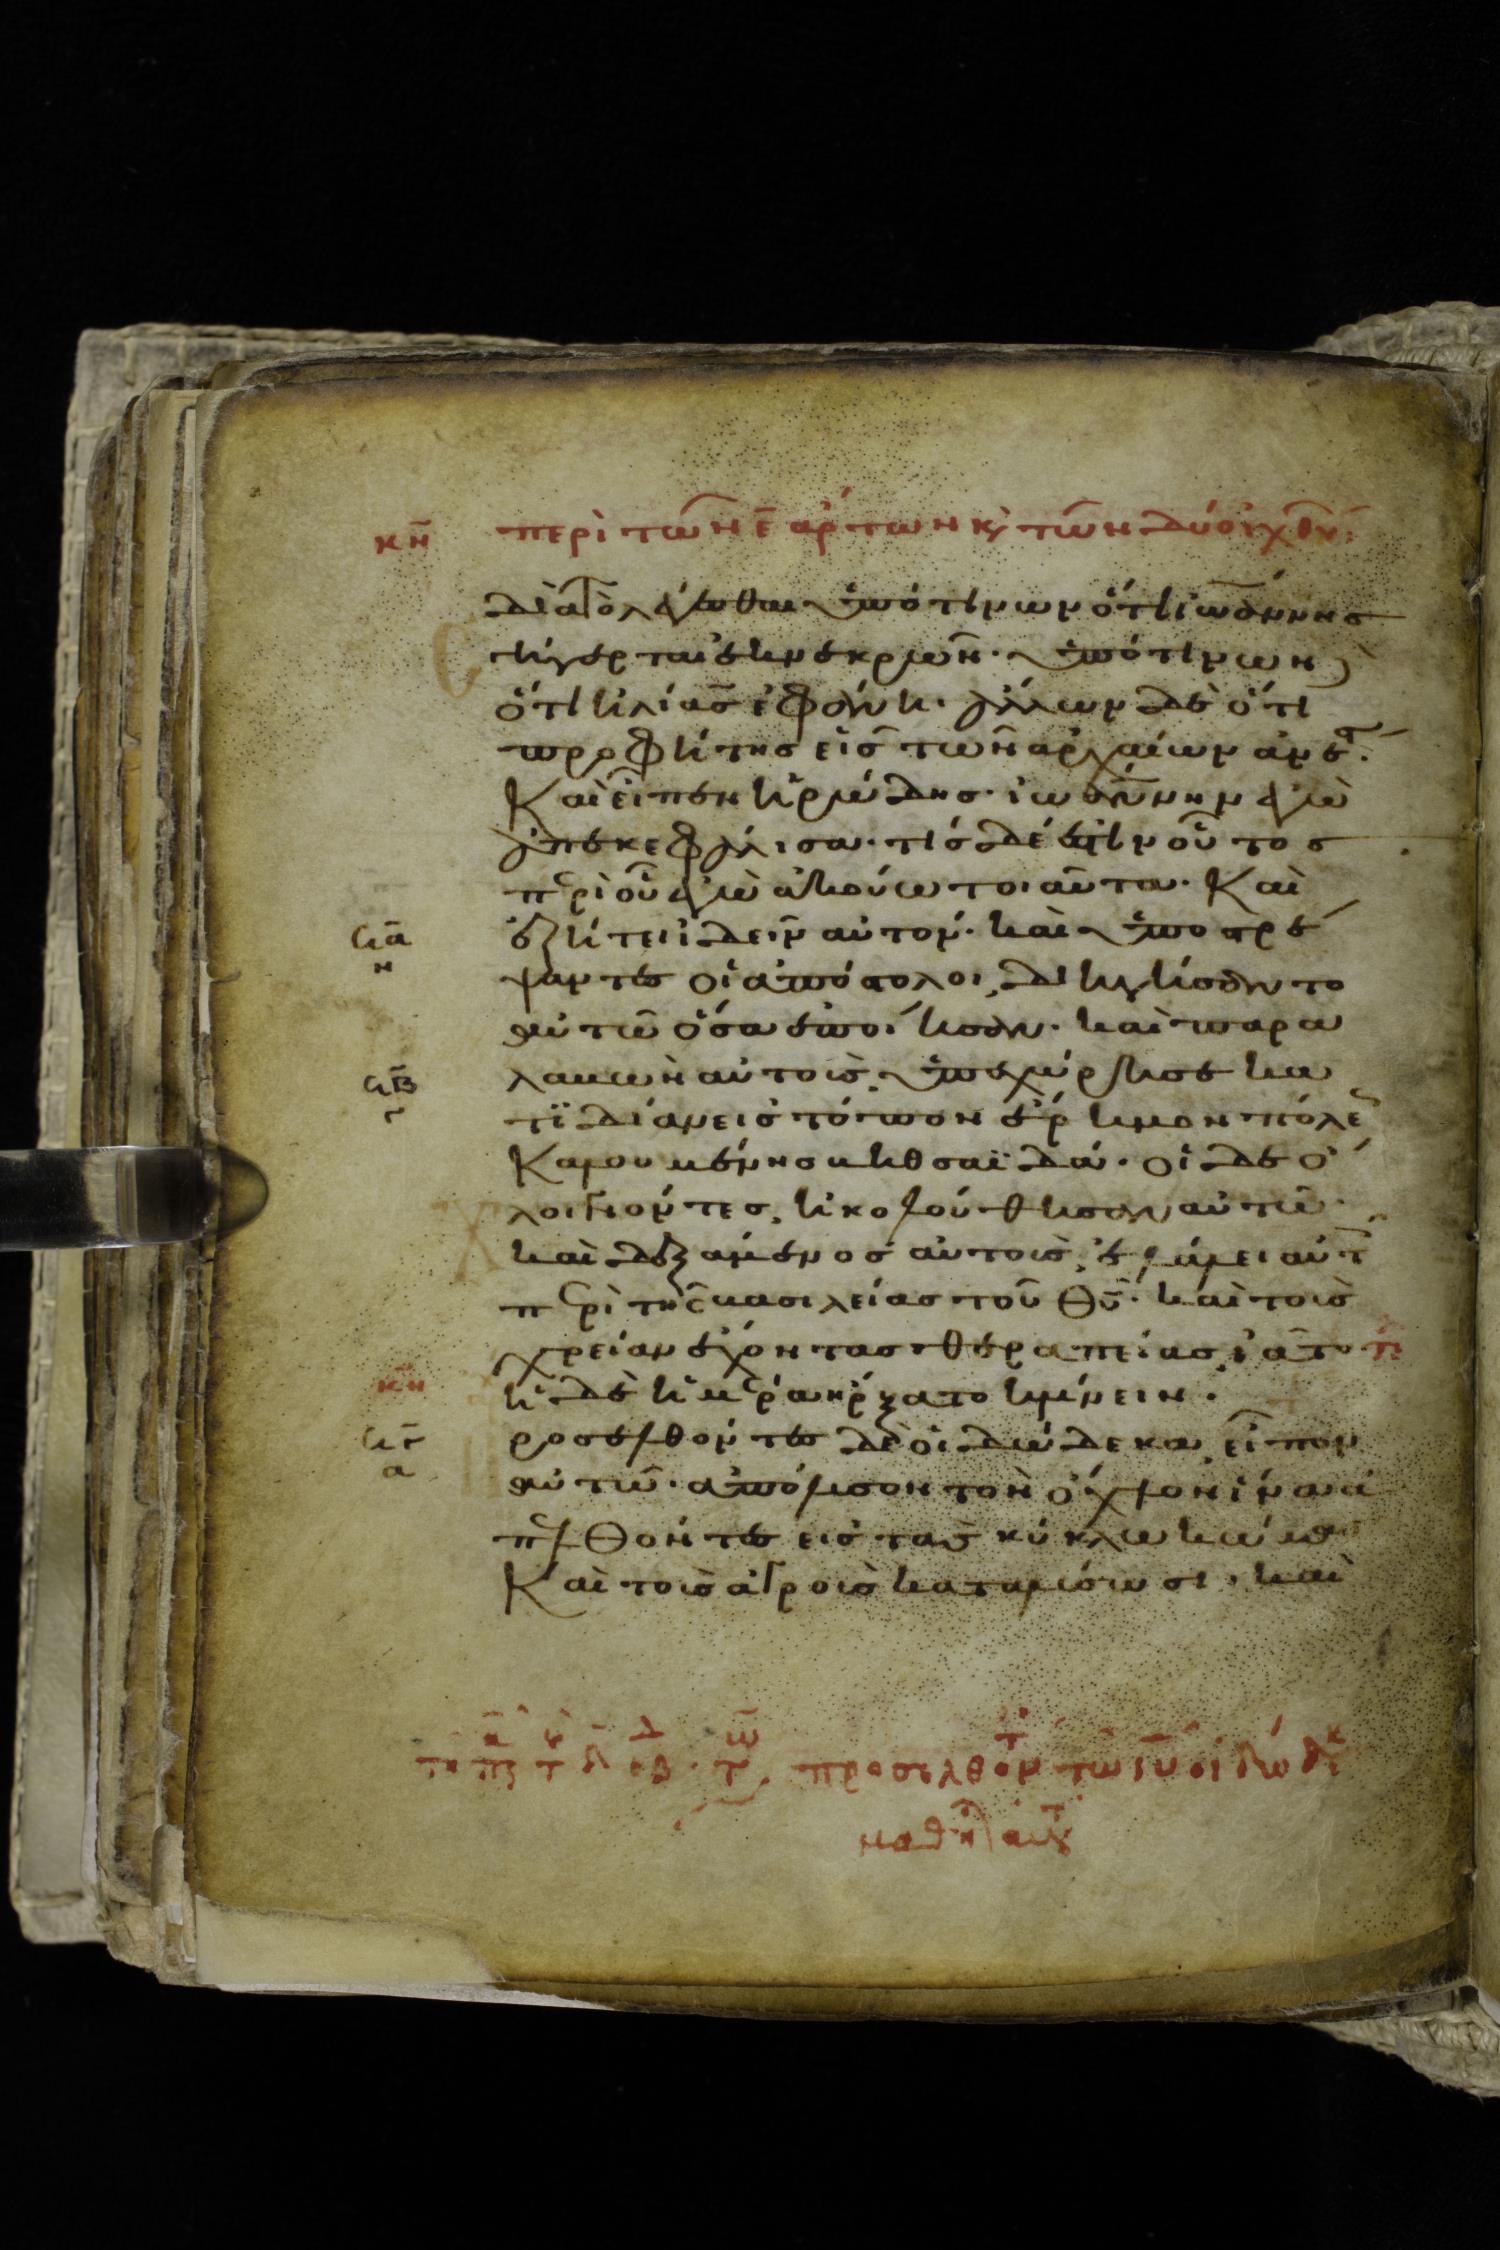 κη περὶ τῶν ε̄ αρ́των κ̀ τῶν δύο ἰχθύ:
διὰ τὸ λέγεσθαι ὑπό τινων ὅτι ἰωάννης
ἐγήγερται ἐκ νεκρῶν· ὑπό τινων
ὅτι ἡλίας ἐφάνη· ἄλλων δὲ ὅτι
προφήτης εἷς τῶν ἀρχαίων ἀνέστ
Καὶ εἶπεν ἡρώδης· ἰωάννην ἐγὼ
ἀπεκεφάλισα· τίς δέ ἐστιν οὗτος
περὶ οὗ ἐγὼ ἀκούω τοιαῦτα· Καὶ
ἐζήτει ἰδεῖν αὐτόν· καὶ ὑποστρέ
ψαντες οἱ ἀπόστολοι, διηγήσαντο
αὐτῶ ὅσα ἐποίησαν· καὶ παρα
λαβὼν αὐτοὺς, ὑπεχώρησε κα
τϊδίαν εἰς τόπον ἔρημον πόλε
Καλουμένης βηθσαϊδά· οἱ δὲ ὄ
χλοι γνόντες, ἠκολούθησαν αὐτῶ·
καὶ δεξάμενος αὐτοὺς, ἐλάλει αὐτ
περὶ τῆς βασιλείας τοῦ θῡ· καὶ τοὺς
χρείαν ἔχοντας θεραπείας, ἰᾶτο·
κη ἡ δὲ ἡμέρα ἤρξατο κλίνειν·
ροσελθόντες δὲ οἱ δώδεκα, εἶπον
αὐτῶ· ἀπόλυσον τὸν ὄχλον ἵνα
ἀπελθόντες εἰς τὰς κύκλω κώμας
Καὶ τοὺς ἀγροὺς καταλύσωσι, καὶ
προσελθον τῶ ιῡ οἱ δώδκ
μαθητ αυτ